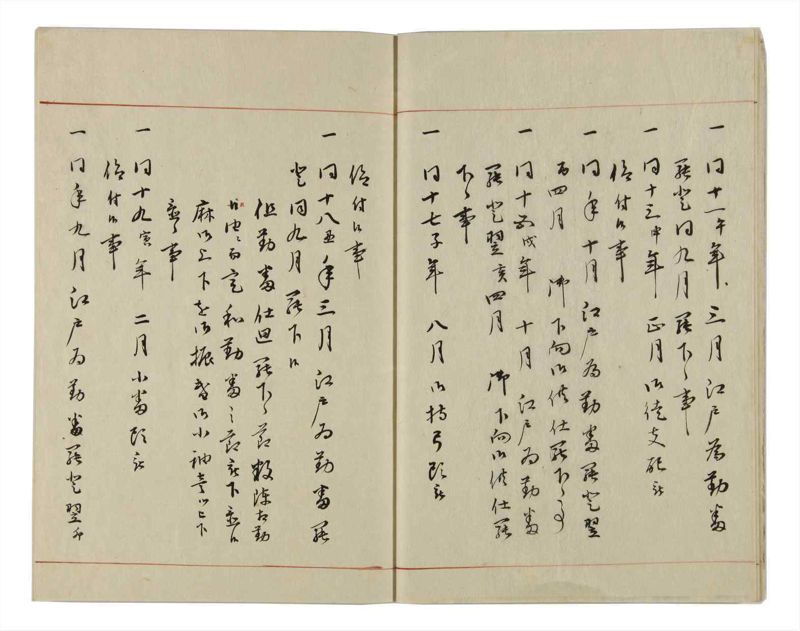 一 同十一午年 三月 江戸為勤番
罷登同九月 罷下ル事
一 同十三申年 正月御徒支配被
仰付候事
一 同年十月江戸為勤番罷登翌
酉四月 御下向御供仕罷下ル事
一 同十五戌年 十月 江戸為勤番
罷登翌亥四月 御下向御供仕罷
下ル事
一 同十七子年 八月御持弓頭被
仰付候事
一 同十八丑年三月江戸為勤番罷
登同九月罷下候
但勤番仕廻罷下ル節数陳古勤
和勤番之節被下置候
麻御上下を御振替御小袖壱ツ被下
置候事
一 同十九寅年 二月小番頭被
仰付候事
一 同年九月江戸為勤番罷登翌卯